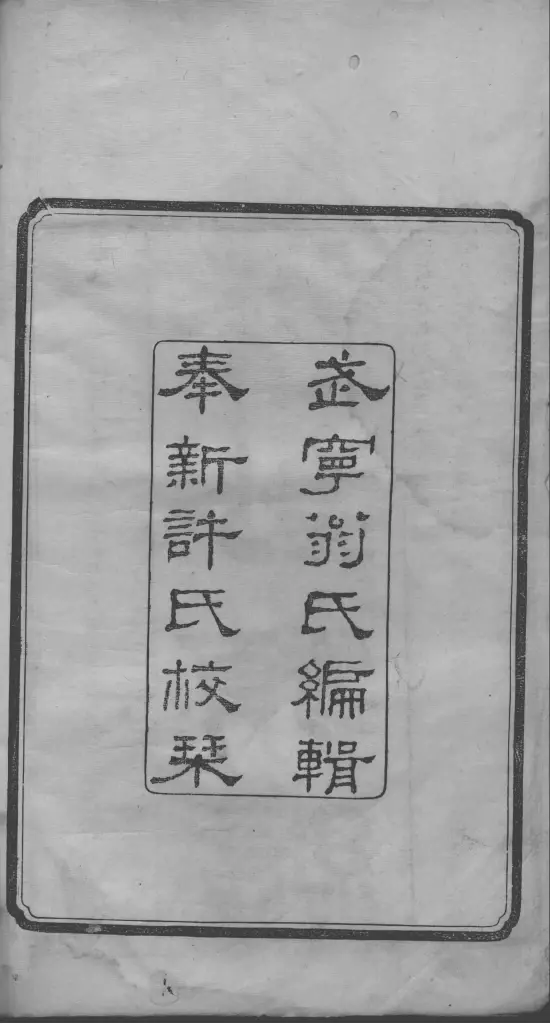 武寧翁氏編輯
奉新許氏校栞